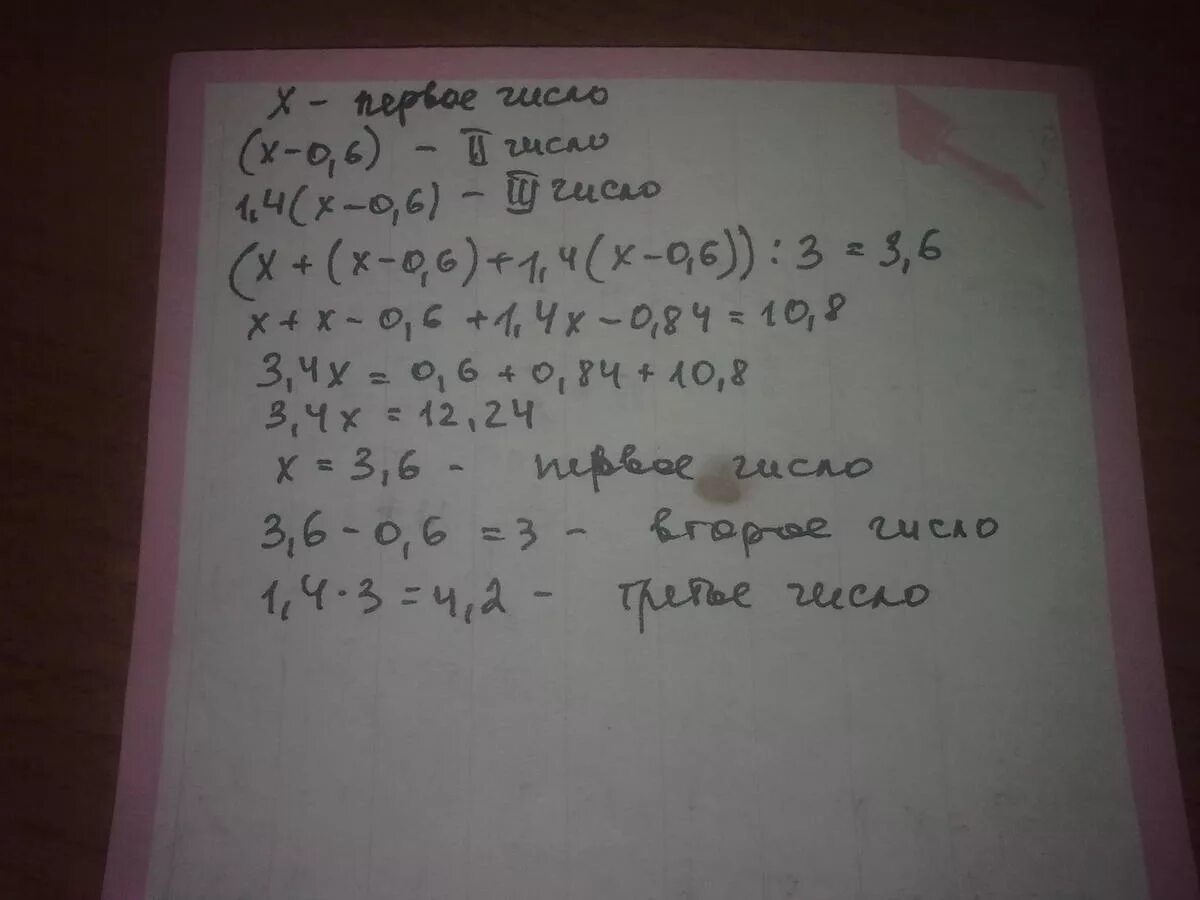 x - первое число
(x-0,6) - II число
1,4(x-0,6) - III число
(x+(x-0,6)+1,4(x-0,6)):3=3,6
x+x-0,6+1,4x-0,84=10,8
3,4x=0,6+0,84+10,8
3,4x=12,24
x=3,6 - первое число
3,6-0,6=3 - второе число
1,4·3=4,2 - третье число